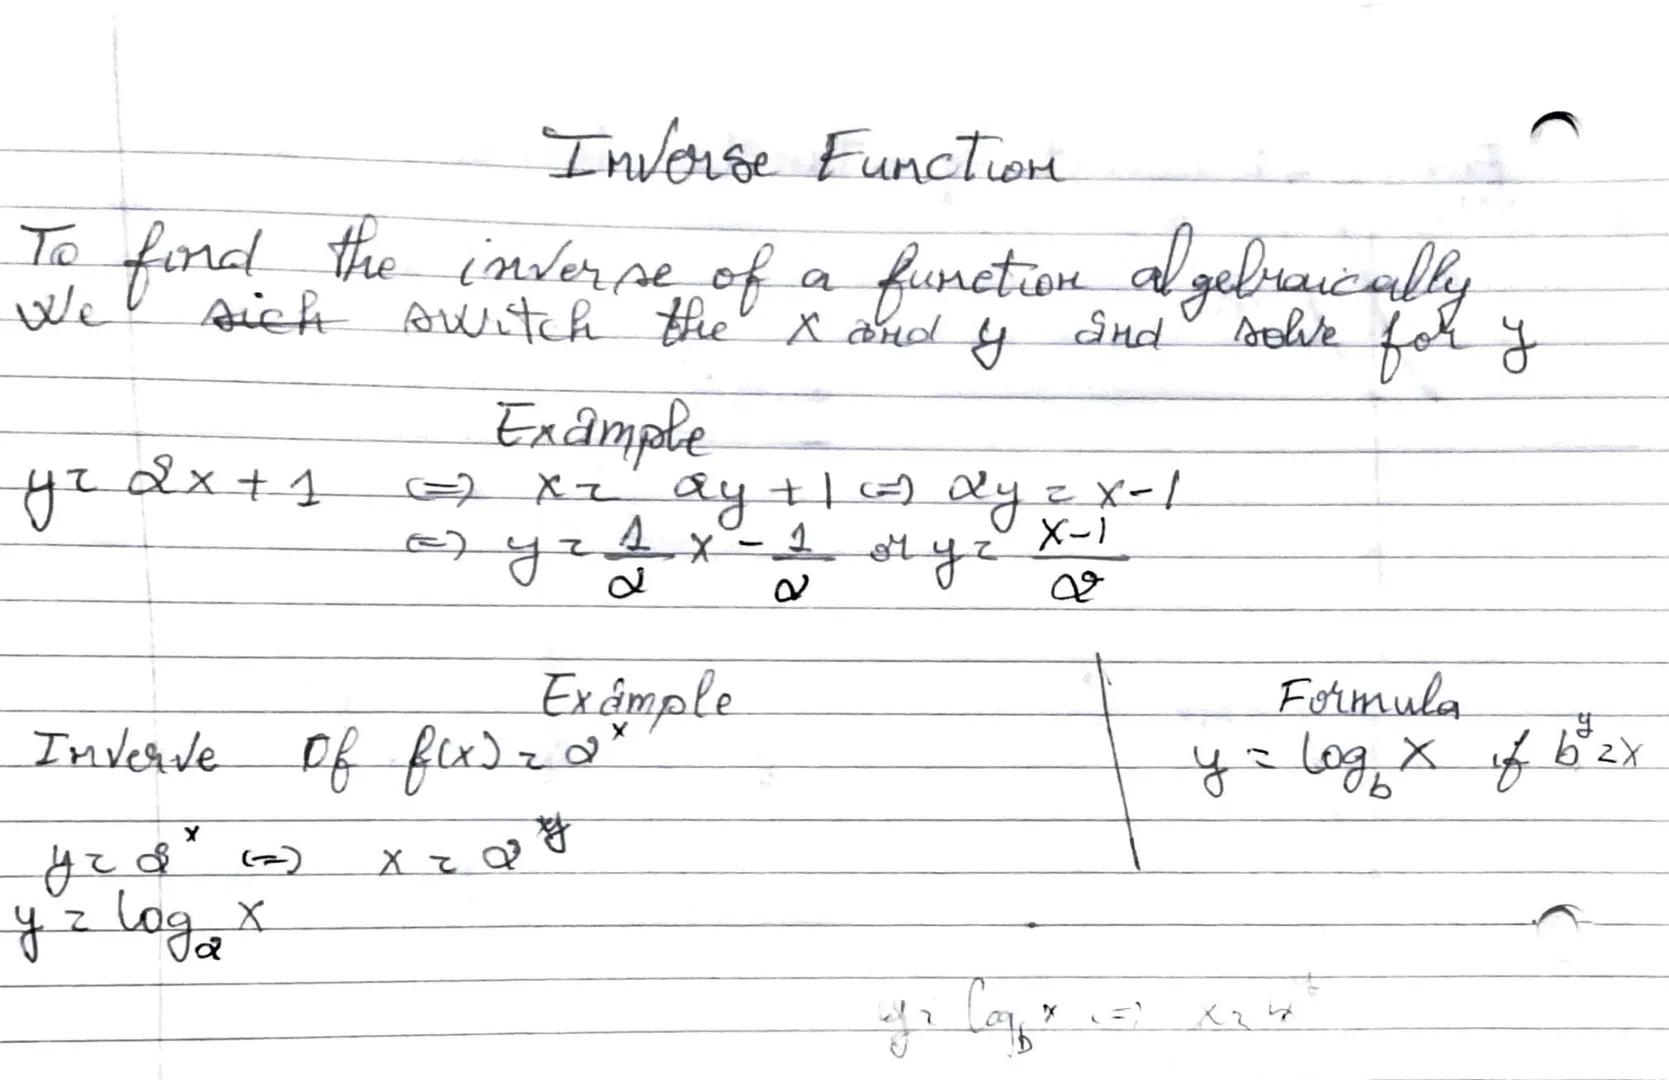 Inverse Function
To find the inverse of a function algebraically
We sich switch the x and y and solve for y
Example
y = 2x + 1 <=> x = 2y + 1 <=> 2y = x - 1
<=> y = 1/2 x - 1/2 or y = x-1/2
Example
Inverve Of f(x) = 2^x
Formula
y = log_b x if b^y = x
y = 2^x <=> x = 2^y
y = log_2 x
y = log_b x <=> x =